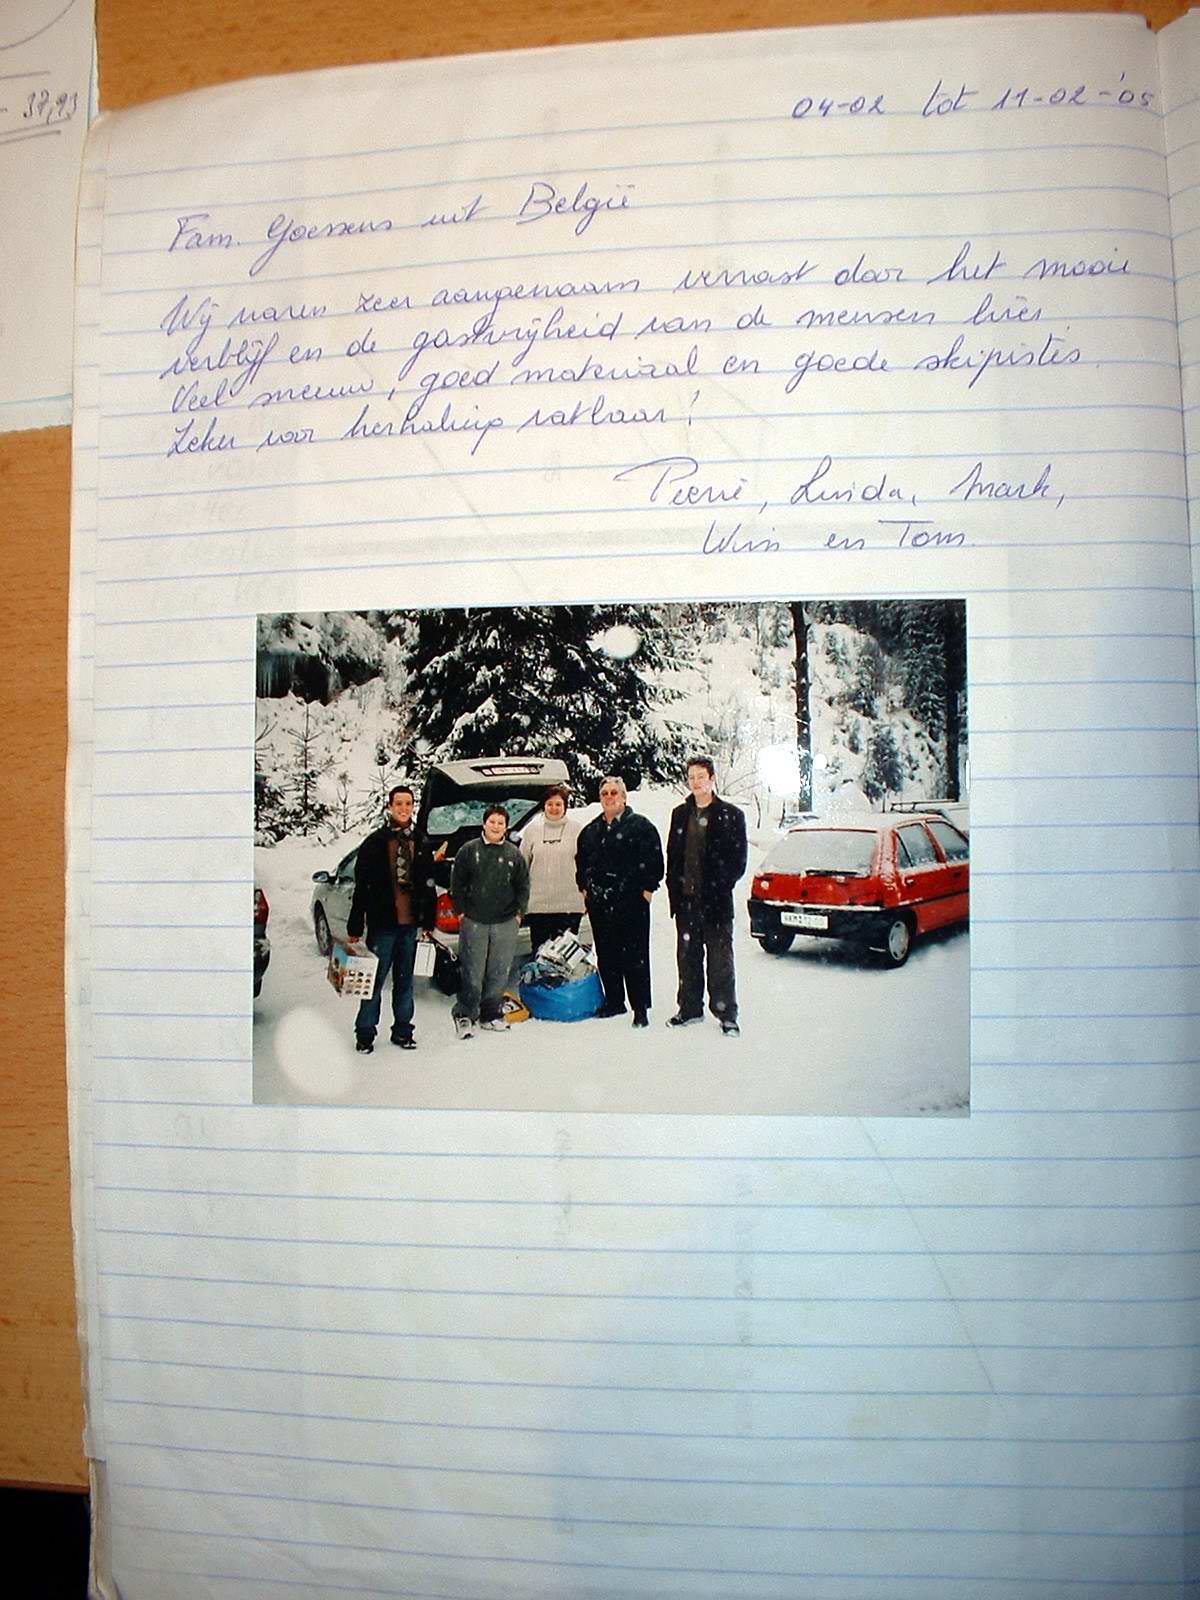 - 37,93
04-02 tot 11-02-'05
Fam. Goessens uit België
Wij waren zeer aangenaam verrast door het mooie
verblijf en de gastvrijheid van de mensen hier.
Veel sneeuw, goed materiaal en goede skipistes.
Zeker voor herhaling vatbaar!
Pierre, Linda, Mark,
Wim en Tom.